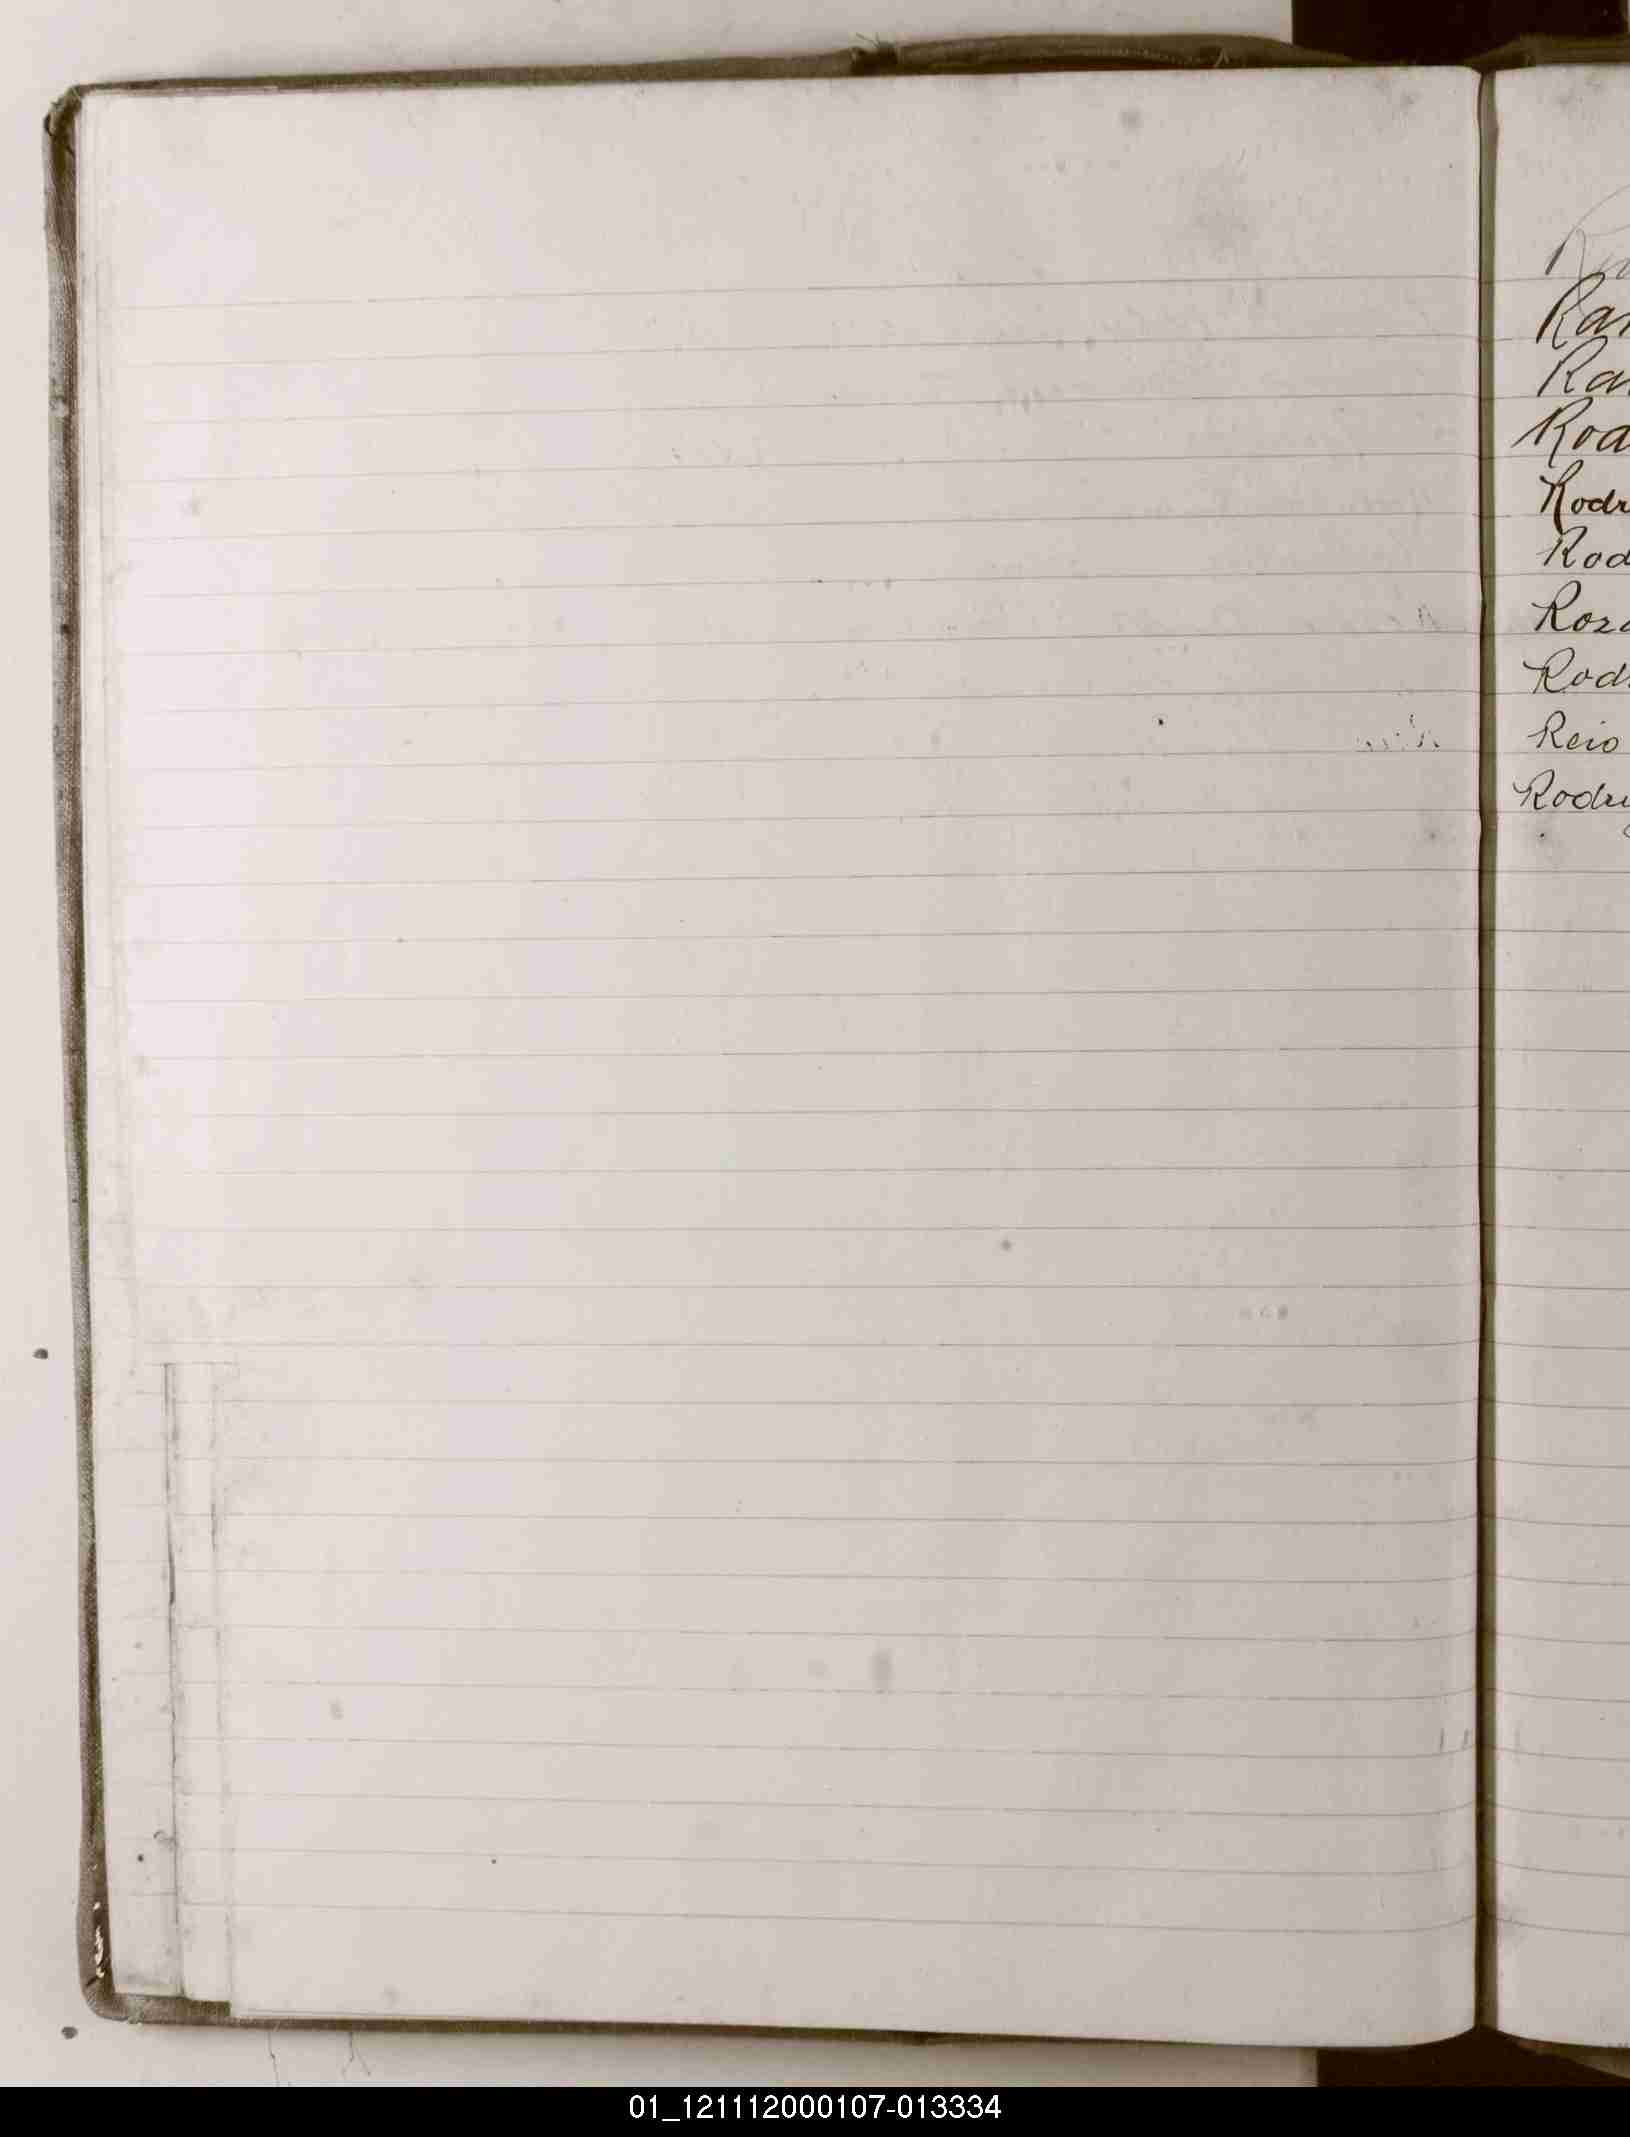 Ran
Ran
Rod
Rodr
Rod
Roza
Rodr
Reio
Rodrig
01_121112000107-013334